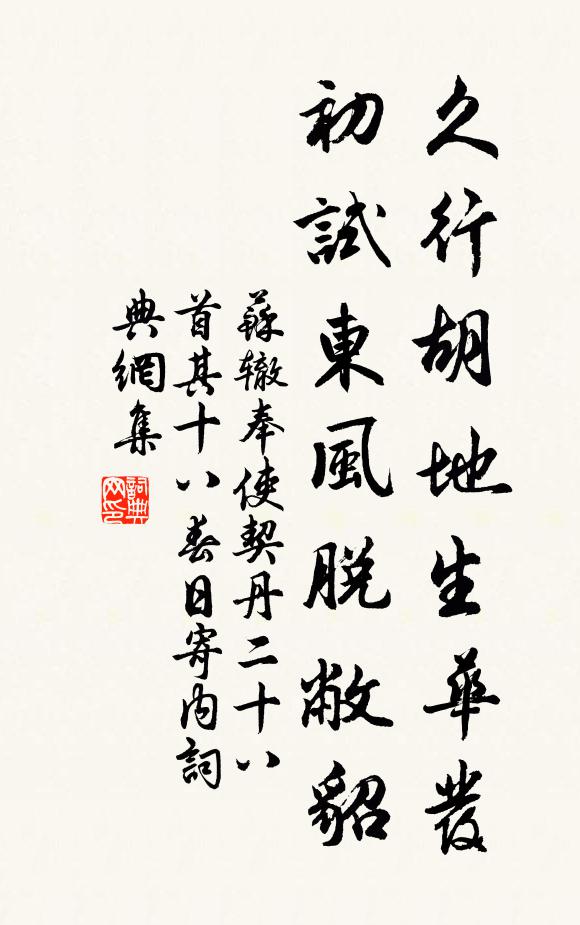 久行胡地生華髮
初試東風脫敝貂
蘇轍奉使契丹二十八
首其十八春日寄內詞
典網集
詞典
网印